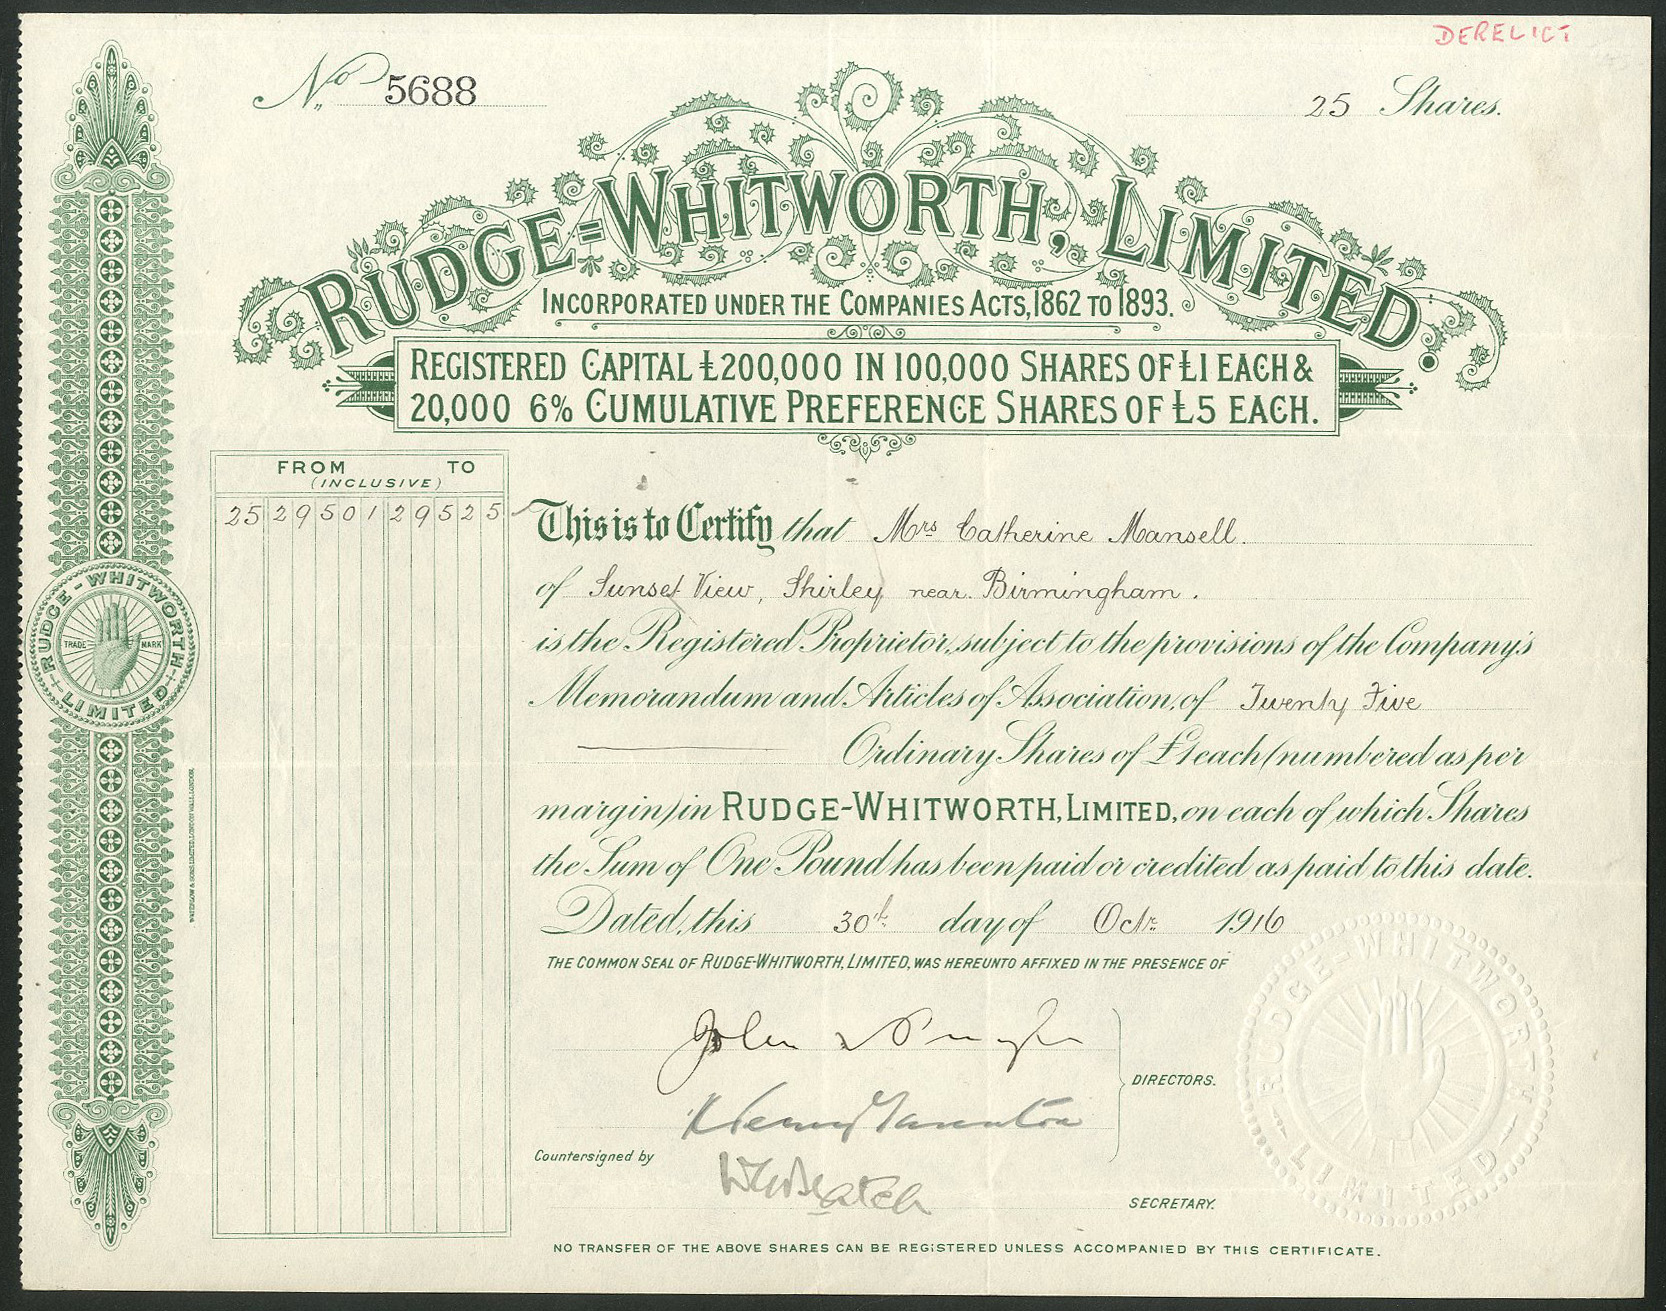 DERELICT
No 5688
25 Shares.
RUDGE-WHITWORTH, LIMITED.
INCORPORATED UNDER THE COMPANIES ACTS, 1862 TO 1893.
REGISTERED CAPITAL £200,000 IN 100,000 SHARES OF £1 EACH &
20,000 6% CUMULATIVE PREFERENCE SHARES OF £5 EACH.
FROM TO
(INCLUSIVE)
25 29501 29525
This is to Certify that Mrs Catherine Mansell.
of Sunset View, Shirley near Birmingham.
is the Registered Proprietor, subject to the provisions of the Company's
Memorandum and Articles of Association, of Twenty Five
Ordinary Shares of £1 each (numbered as per
margin) in RUDGE-WHITWORTH, LIMITED, on each of which Shares
the Sum of One Pound has been paid or credited as paid to this date.
Dated, this 30th day of Octr 1916
THE COMMON SEAL OF RUDGE-WHITWORTH, LIMITED, WAS HEREUNTO AFFIXED IN THE PRESENCE OF
John
DIRECTORS.
Countersigned by
SECRETARY.
NO TRANSFER OF THE ABOVE SHARES CAN BE REGISTERED UNLESS ACCOMPANIED BY THIS CERTIFICATE.
RUDGE-WHITWORTH LIMITED
TRADE MARK
WATERLOW & SONS LIMITED, LONDON WALL, LONDON.
RUDGE-WHITWORTH LIMITED